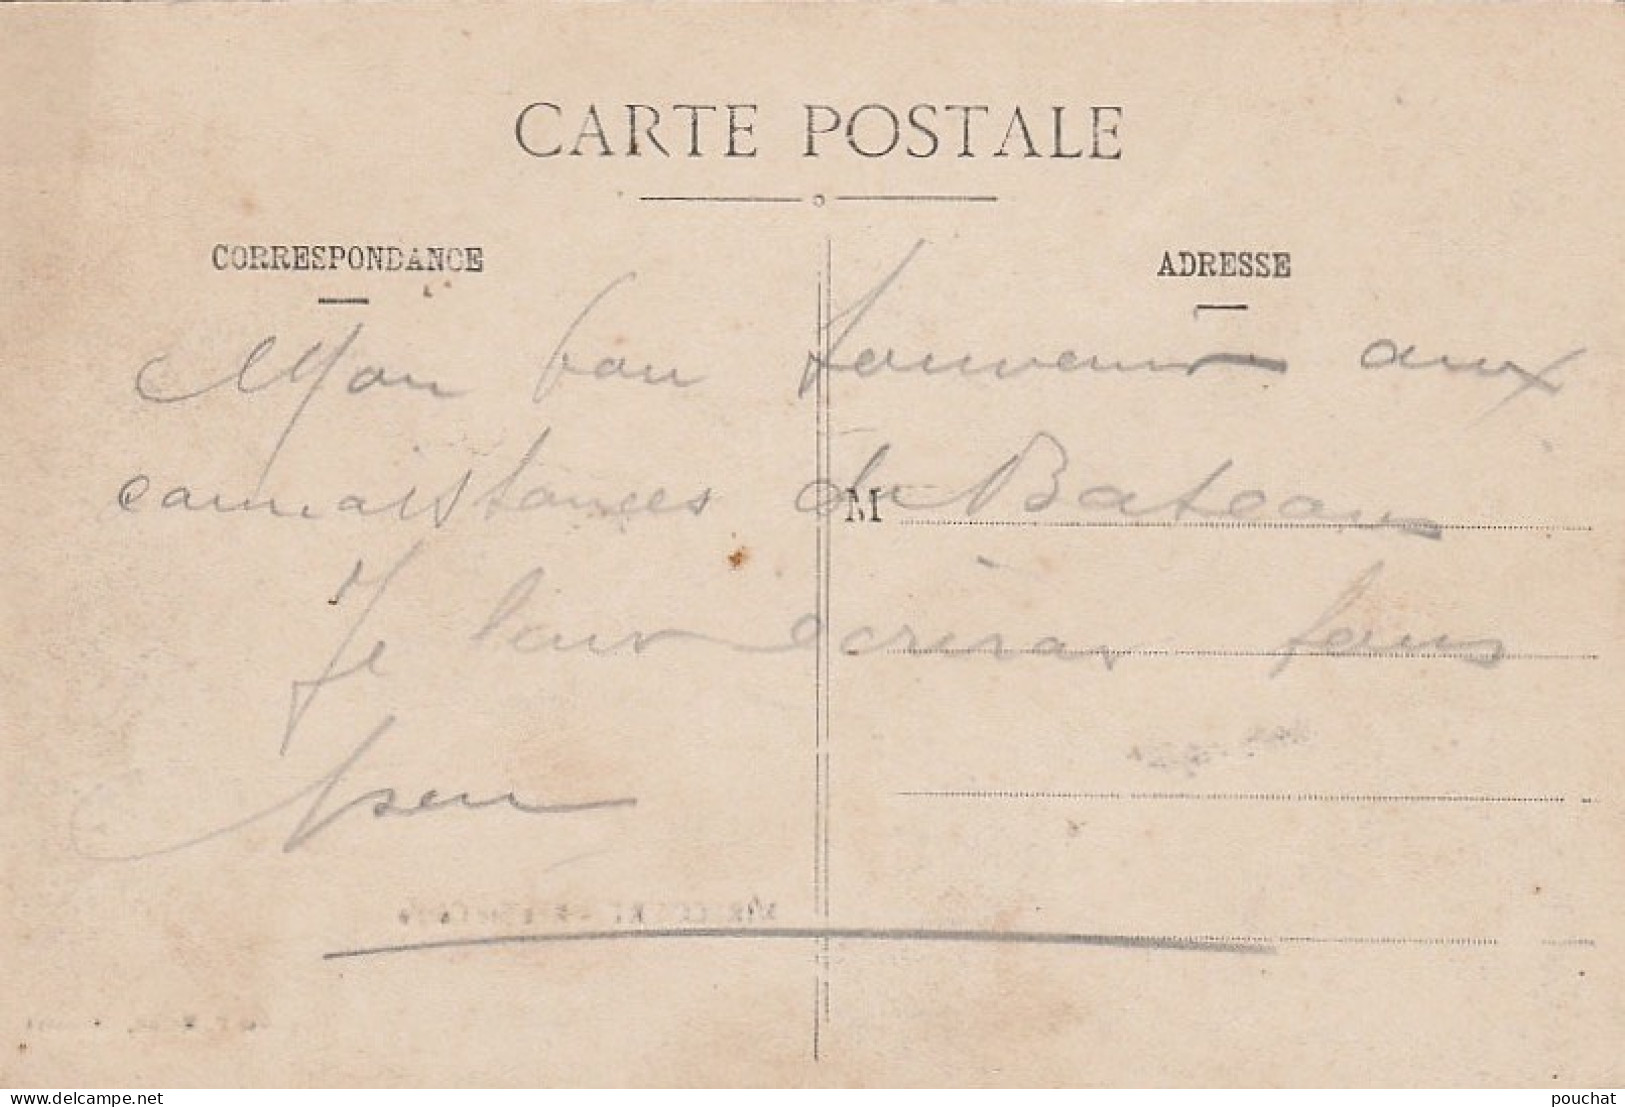 CARTE POSTALE
CORRESPONDANCE
ADRESSE
Mon bon souvenir aux
connaissances du Bateau
M
Je leur écrirai sous
peu
delcampe.net
pouchat